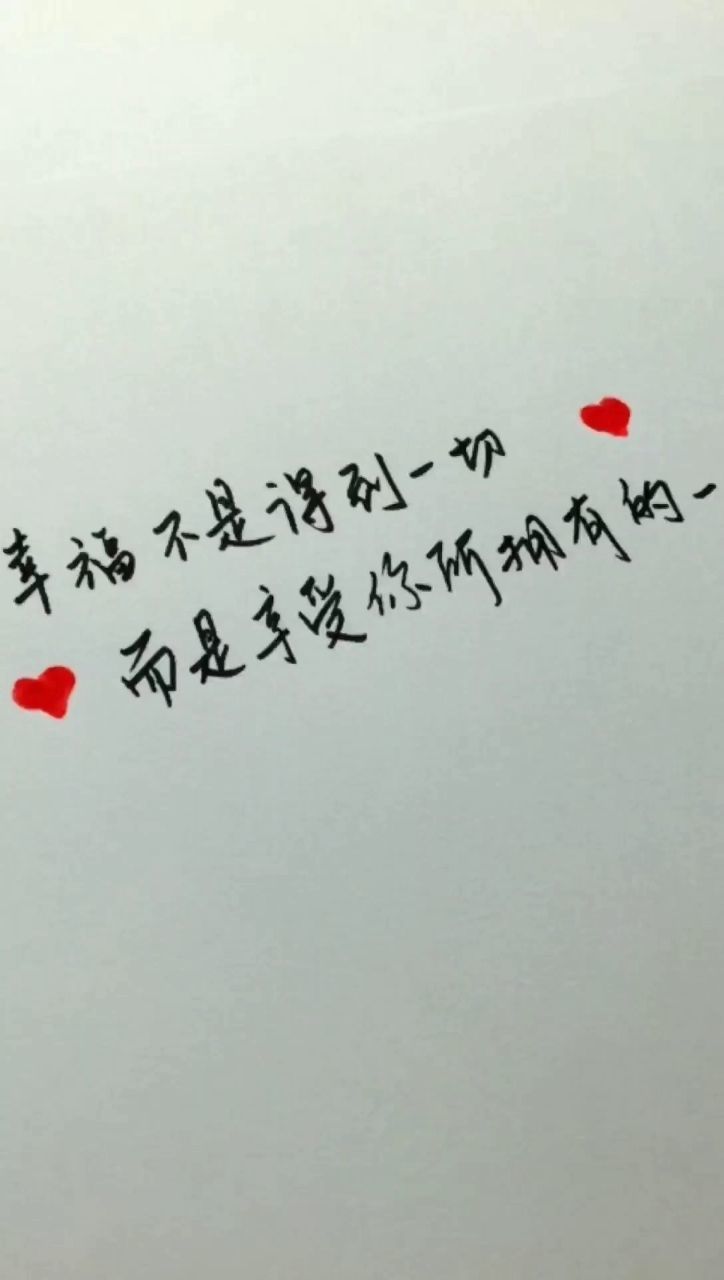 幸福不是得到一切
而是享受你所拥有的一